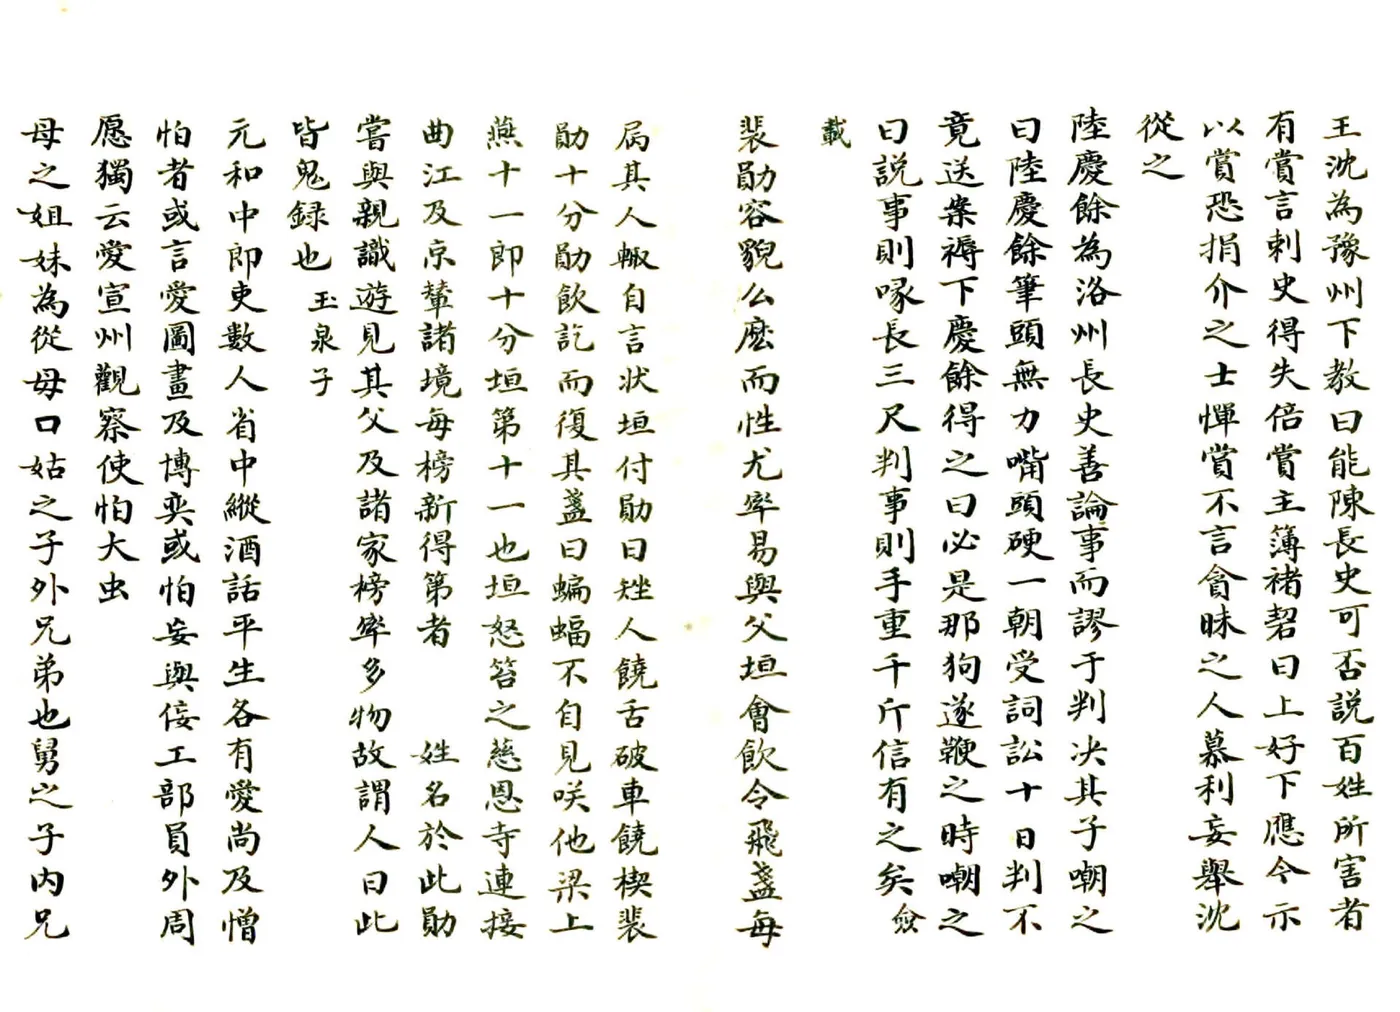 王沈為豫州下教曰能陳長史可否説百姓所害者
有賞言刺史得失倍賞主簿褚䂮曰上好下應今示
以賞恐捐介之士憚賞不言貪昧之人慕利妄舉沈
從之
陸慶餘為洛州長史善論事而謬于判决其子嘲之
曰陸慶餘筆頭無力嘴頭硬一朝受詞訟十日判不
竟送案褥下慶餘得之曰必是那狗遂鞭之時嘲之
曰説事則喙長三尺判事則手重千斤信有之矣僉
載
裴勛容貌么麽而性尤率易與父垣會飲令飛盞每
屙其人輙自言状垣付勛曰矬人饒舌破車饒楔裴
勛十分勛飲訖而復其盞曰蝙蝠不自見咲他梁上
燕十一郎十分垣第十一也垣怒笞之慈恩寺連接
曲江及京輦諸境每榜新得第者 姓名於此勛
嘗與親識遊見其父及諸家榜率多物故謂人曰此
皆鬼録也 玉泉子
元和中郎吏數人省中縱酒話平生各有愛尚及憎
怕者或言愛圖畫及博奕或怕妄與佞工部員外周
愿獨云愛宣州觀察使怕大虫
母之姐妹為從母口姑之子外兄弟也舅之子内兄